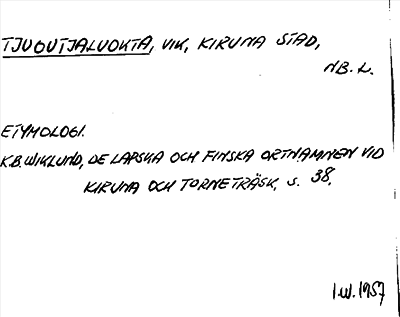 TJUOUTJALUOKTA, VIK, KIRUNA STAD,
NB. L.
ETYMOLOGI.
K.B. WIKLUND, DE LAPSKA OCH FINSKA ORTNAMNEN VID
KIRUNA OCH TORNETRÄSK, S. 38.
I.W. 1957